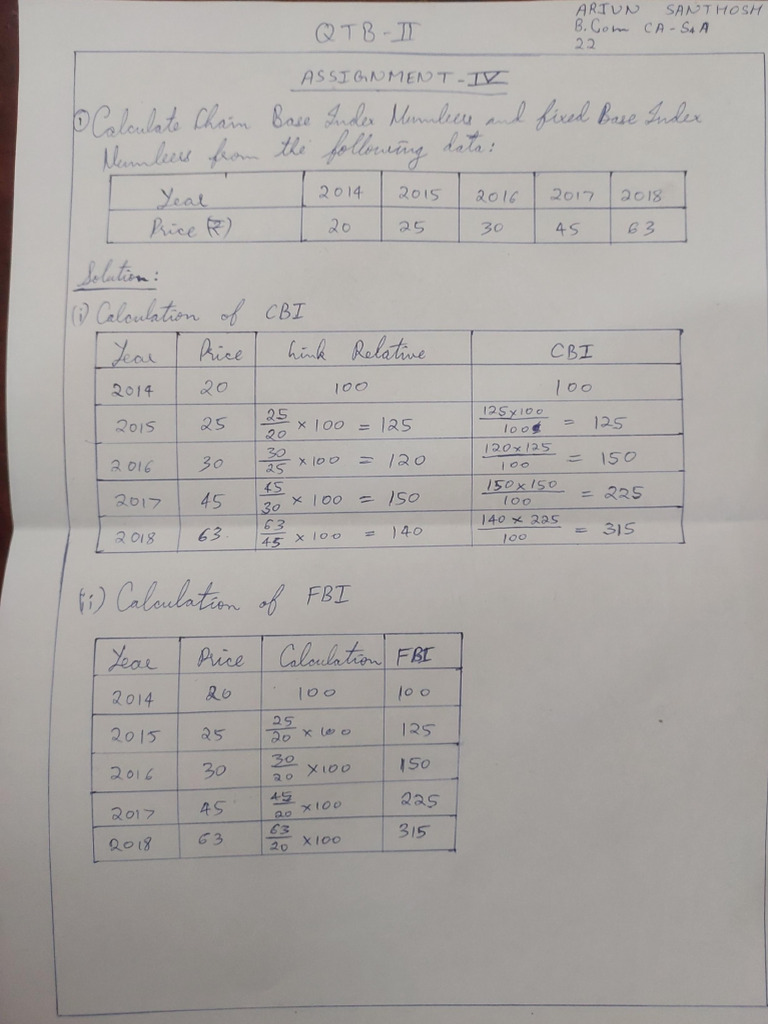 ARJUN SANTHOSH
QTB-II
B.Com CA-S4A
22
ASSIGNMENT-IV
① Calculate Chain Base Index Numbers and fixed Base Index
Numbers from the following data:
Year 2014 2015 2016 2017 2018
Price (₹) 20 25 30 45 63
Solution:
(i) Calculation of CBI
Year Price Link Relative CBI
2014 20 100 100
2015 25 25/20 × 100 = 125 125×100/100 = 125
2016 30 30/25 ×100 = 120 120×125/100 = 150
2017 45 45/30 × 100 = 150 150×150/100 = 225
2018 63 63/45 × 100 = 140 140 × 225/100 = 315
(ii) Calculation of FBI
Year Price Calculation FBI
2014 20 100 100
2015 25 25/20 × 100 125
2016 30 30/20 ×100 150
2017 45 45/20 ×100 225
2018 63 63/20 ×100 315